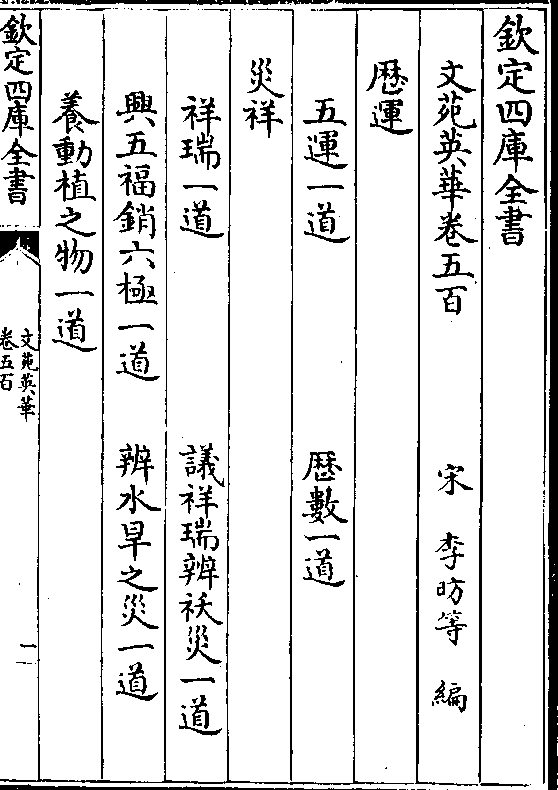 欽定四庫全書
文苑英華卷五百
宋 李昉等 編
厯運
五運一道
厯數一道
災祥
祥瑞一道
議祥瑞辨祅災一道
興五福銷六極一道
辨水旱之災一道
養動植之物一道
欽定四庫全書
文苑英華
卷五百
一